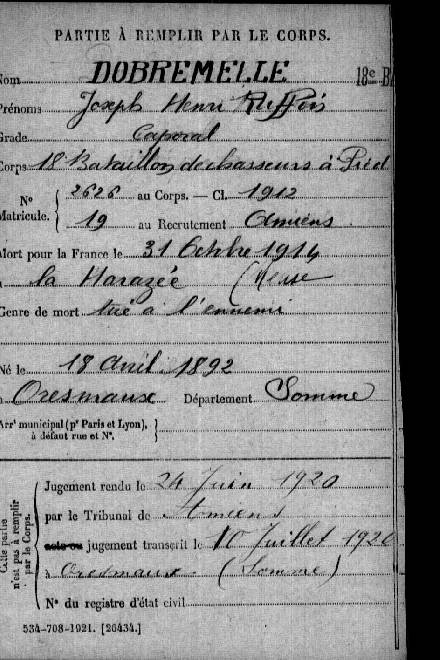 PARTIE À REMPLIR PAR LE CORPS.
Nom DOBREMELLE 18e B
Prénoms Joseph Henri
Grade Caporal
Corps 18 Bataillon de chasseurs à Pied
N° Matricule. { 2626 au Corps. — Cl. 1912
19 au Recrutement Amiens
Mort pour la France le 31 Octobre 1914
à la Harazée (Meuse
Genre de mort tué à l'ennemi
Né le 18 Avril 1892
à Oresmaux Département Somme
Arr' municipal (p' Paris et Lyon), }
à défaut rue et N°.
Cette partie
n'est pas à remplir
par le Corps.
Jugement rendu le 24 Juin 1920
par le Tribunal de Amiens
acte ou jugement transcrit le 10 Juillet 1920
à Oresmaux (Somme)
N° du registre d'état civil
534-708-1921. [26434.]